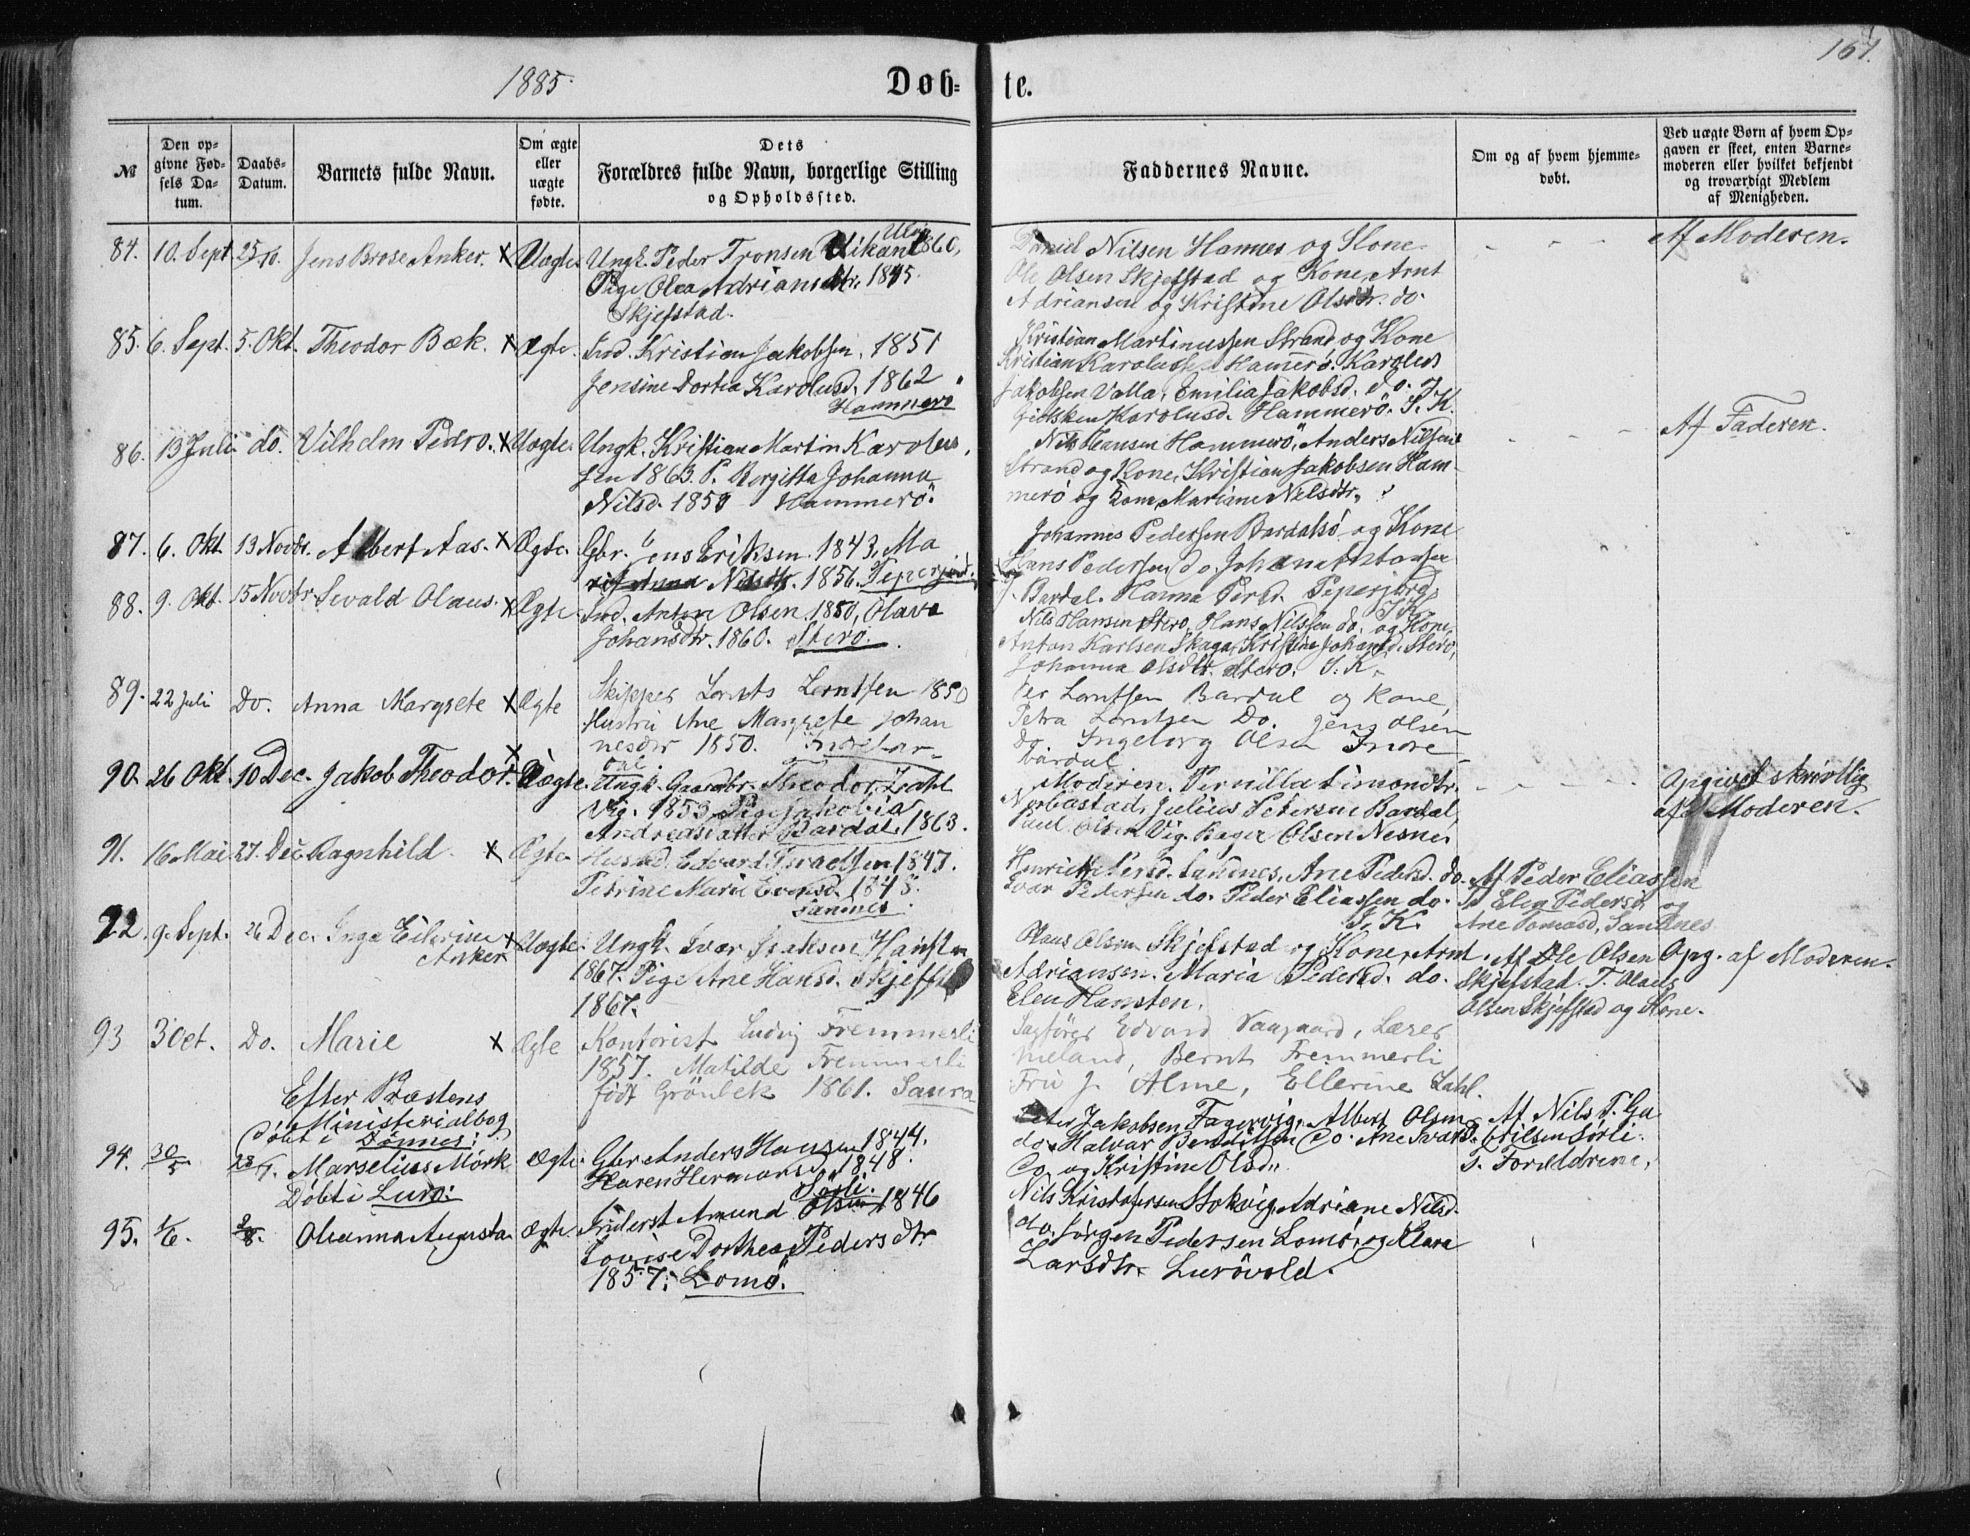 1885.
Døb-
te.
167.
№
Den op-
givne Fød-
sels Da-
tum.
Daabs-
Datum.
Barnets fulde Navn.
Om ægte
eller
uægte
fødte.
Dets
Forældres fulde Navn, borgerlige Stilling
og Opholdssted.
Faddernes Navne.
Om og af hvem hjemme-
døbt.
Ved uægte Børn af hvem Op-
gaven er skeet, enten Barne-
moderen eller hvilket bekjendt
og troværdigt Medlem
af Menigheden.
84. 10. Sept. 25/10. Jens Brose Anker. X Uægte.
Ungk. Peder Tronsen 1860,
Pige Olea Adriansdtr. 1845.
Skjefstad.
Daniel Nilsen Hamnes og Kone.
Ole Olsen Skjefstad og Kone, Arnt
Adriansen og Kristine Olsdtr. do.
- - - Af Moderen.
85. 6. Sept. 5. Okt. Theodor Bæk. X Ægte.
Ind. Kristian Jakobsen. 1851
Jensine Dortea Karolusd. 1862
Hammerø
Kristian Martinussen Strand og Kone
Kristian Karolussen Hammerø. Karoles
Jakobsen Valla, Emilia Jakobsd. do.
Karolusd. Hammerö. I. K.
86. 13 Juli do. Vilhelm Pedro. X Uægte.
Ungk. Kristian Martin Karolus
sen 1863. P. Borgitta Johanna
Nilsd. 1859 Hammerö.
Nils Hansen Hammerö, Anders Nilsen
Strand og Kone, Kristian Jakobsen Ham-
merö og Kone, Mariane Nelsdtr.
- - - Af Faderen.
87. 6. Okt. 13 Novbr. Albert Aas. X Ægte.
Gbr. Jens Eriksen. 1843, Ma
Anna Nilsdtr. 1856.
Johannes Pedersen Bardalsö og Kone
Hans Pedersen do. Johan Antonsen
Bardal. Hanna Persd.
88. 9. Okt. 15 Novbr. Sevald Olaus. X Ægte.
Ind. Anton Olsen 1850, Olava
Johansdtr. 1860. Sterø.
I. K.
Nils Hansen Sterø. Hans Nilssen do. og Kone,
Anton Karlsen Skaga, Kristine Johansd. Sterø,
Johanna Olsdtr. Sterø. I. K.
89. 22 juli Do. Anna Margrete X Ægte
Skipper Lornts Lorntsen 1850
Hustru Ane Margrete Johan
nesdtr 1850. Indrebar-
dal.
Per Lorntsen Bardal og Kone,
Petra Lorntsen Do. Jens Olsen
do Ingeborg Olsen Indre
Bardal
90. 26 Okt. 10 Dec. Jakob Theodor. X Uægte.
Ungk. Gaardbr. Theodor Zahl
Vig. 1853, Pige Jakobia
Andreasdatter Bardal, 1863.
Moderen. Pernilla Simondtr.
Julius Petersen Bardal,
Paul Olsen Vig. Bager Olsen Nesne.
- - - Opgivet skriftlig
af Moderen.
91. 16 Mai 27. Dec. Ragnhild. X Ægte.
Husmd. Edvard Israelssen 1847.
Petrine Marie Evensd. 1848.
Sannes.
Henriette Persd. Sandnes, Ane Pedersd. do.
Ivar Pedersen do. Peder Eliassen do.
I. K.
Af Peder Eliassen
T. Elen Pedersd. og
Ane Tomasd. Sandnes
92. 9. Sept. 26 Dec. Inga Eilerine
Anker X Uægte.
Ungk. Ivar Isaksen Hansten
1867. Pige Ane Hansd. Skjefst
1867.
Olaus Olsen Skjefstad og Kone, Arnt
Adriansen. Maria Pedersd. do.
Elen Hansten.
Af Ole Olsen
Skjefstad. T. Olaus
Olsen Skjefstad og Kone.
Opg. af Moderen.
93 3 Oct. Do. Marie X Ægte
Kontorist Ludvig Fremmerli
1857. Matilde Fremmerli
født Grönbek 1861. Saura
Sagfører Edvard Vaagaard, Lærer
Bernt Fremmerli
Fru J. Alme, Ellerine Zahl.
Efter Præstens
Ministerialbog
Døbt i Dønnes:
94. 30/5 28/7. Marselius Mörk Ægte.
Gbr Anders Hansen 1844.
Karen Hermans 1848.
Sørli.
Peter Jakobsen Fagervig, Albert Olsen
do. Halvar Benditsen Do. Ane Ivarsd.
Do. og Kristine Olsd.
Af Nils T. Ga
brielsen Sörli.
T. Forældrene.
Døbt i Lurø:
95. 1/6. 2/8. Oleanna Augusta. Ægte.
Inderst Amund Olsen 1846
Lovise Dorthea Pedersdtr.
1857. Lomö.
Nils Kristofersen Stokvig, Adriane Nilsd.
do. Jørgen Pedersen Lomö, og Klara
Larsdtr. Lurövold.